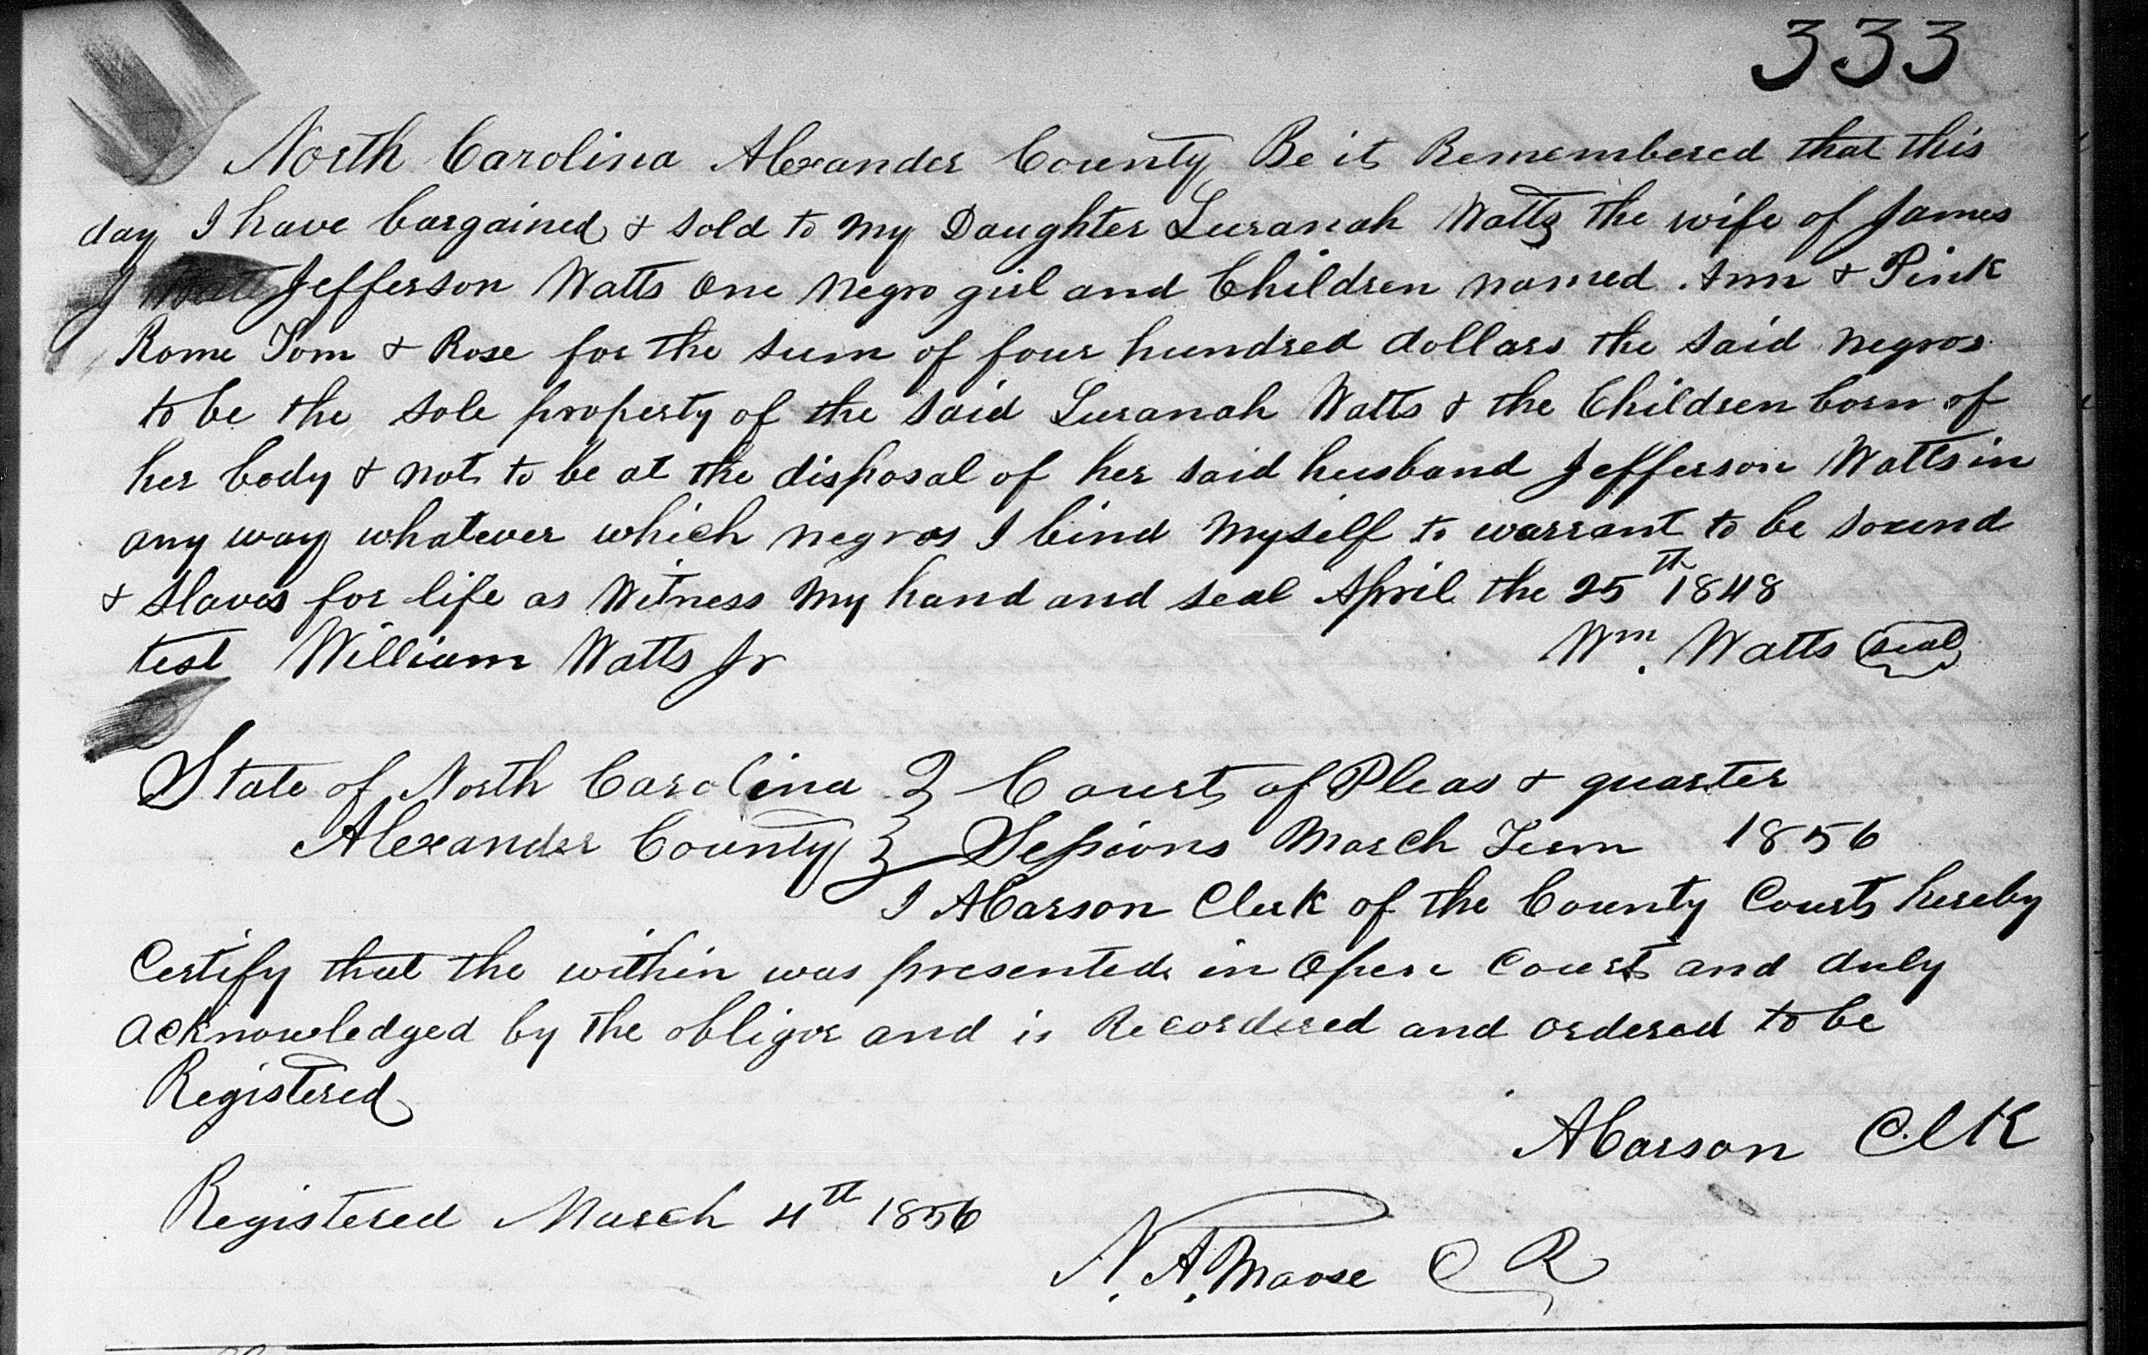 333
North Carolina Alexander County Be it Remembered that this
day I have bargained & sold to my Daughter Luranah Watts the wife of James
J Jefferson Watts One negro girl and Children named Ann & Pink
Rome Tom & Rose for the sum of four hundred dollars the said negros
to be the sole property of the said Luranah Watts & the Children born of
her body & not to be at the disposal of her said husband Jefferson Watts in
any way whatever which negros I bind myself to warrant to be sound
& slaves for life as witness my hand and seal April the 25th 1848
test William Watts Jr Wm. Watts seal
State of North Carolina } Court of Pleas & quarter
Alexander County } Sessions March Term 1856
I A Carson Clerk of the County Court hereby
Certify that the within was presented in Open Court and duly
acknowledged by the obligor and is Recordered and ordered to be
Registered
A Carson Clk
Registered March 4th 1856
N. A. Moose C R